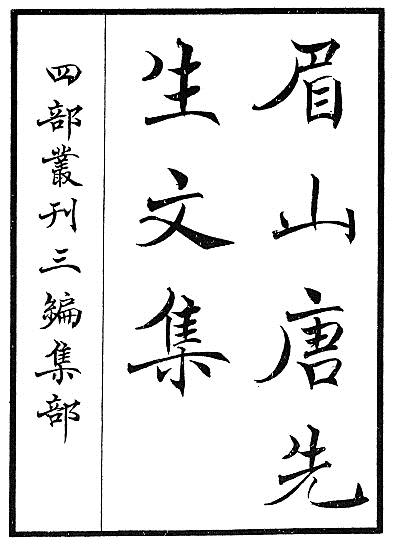 眉山唐先
生文集
四部叢刊三編集部